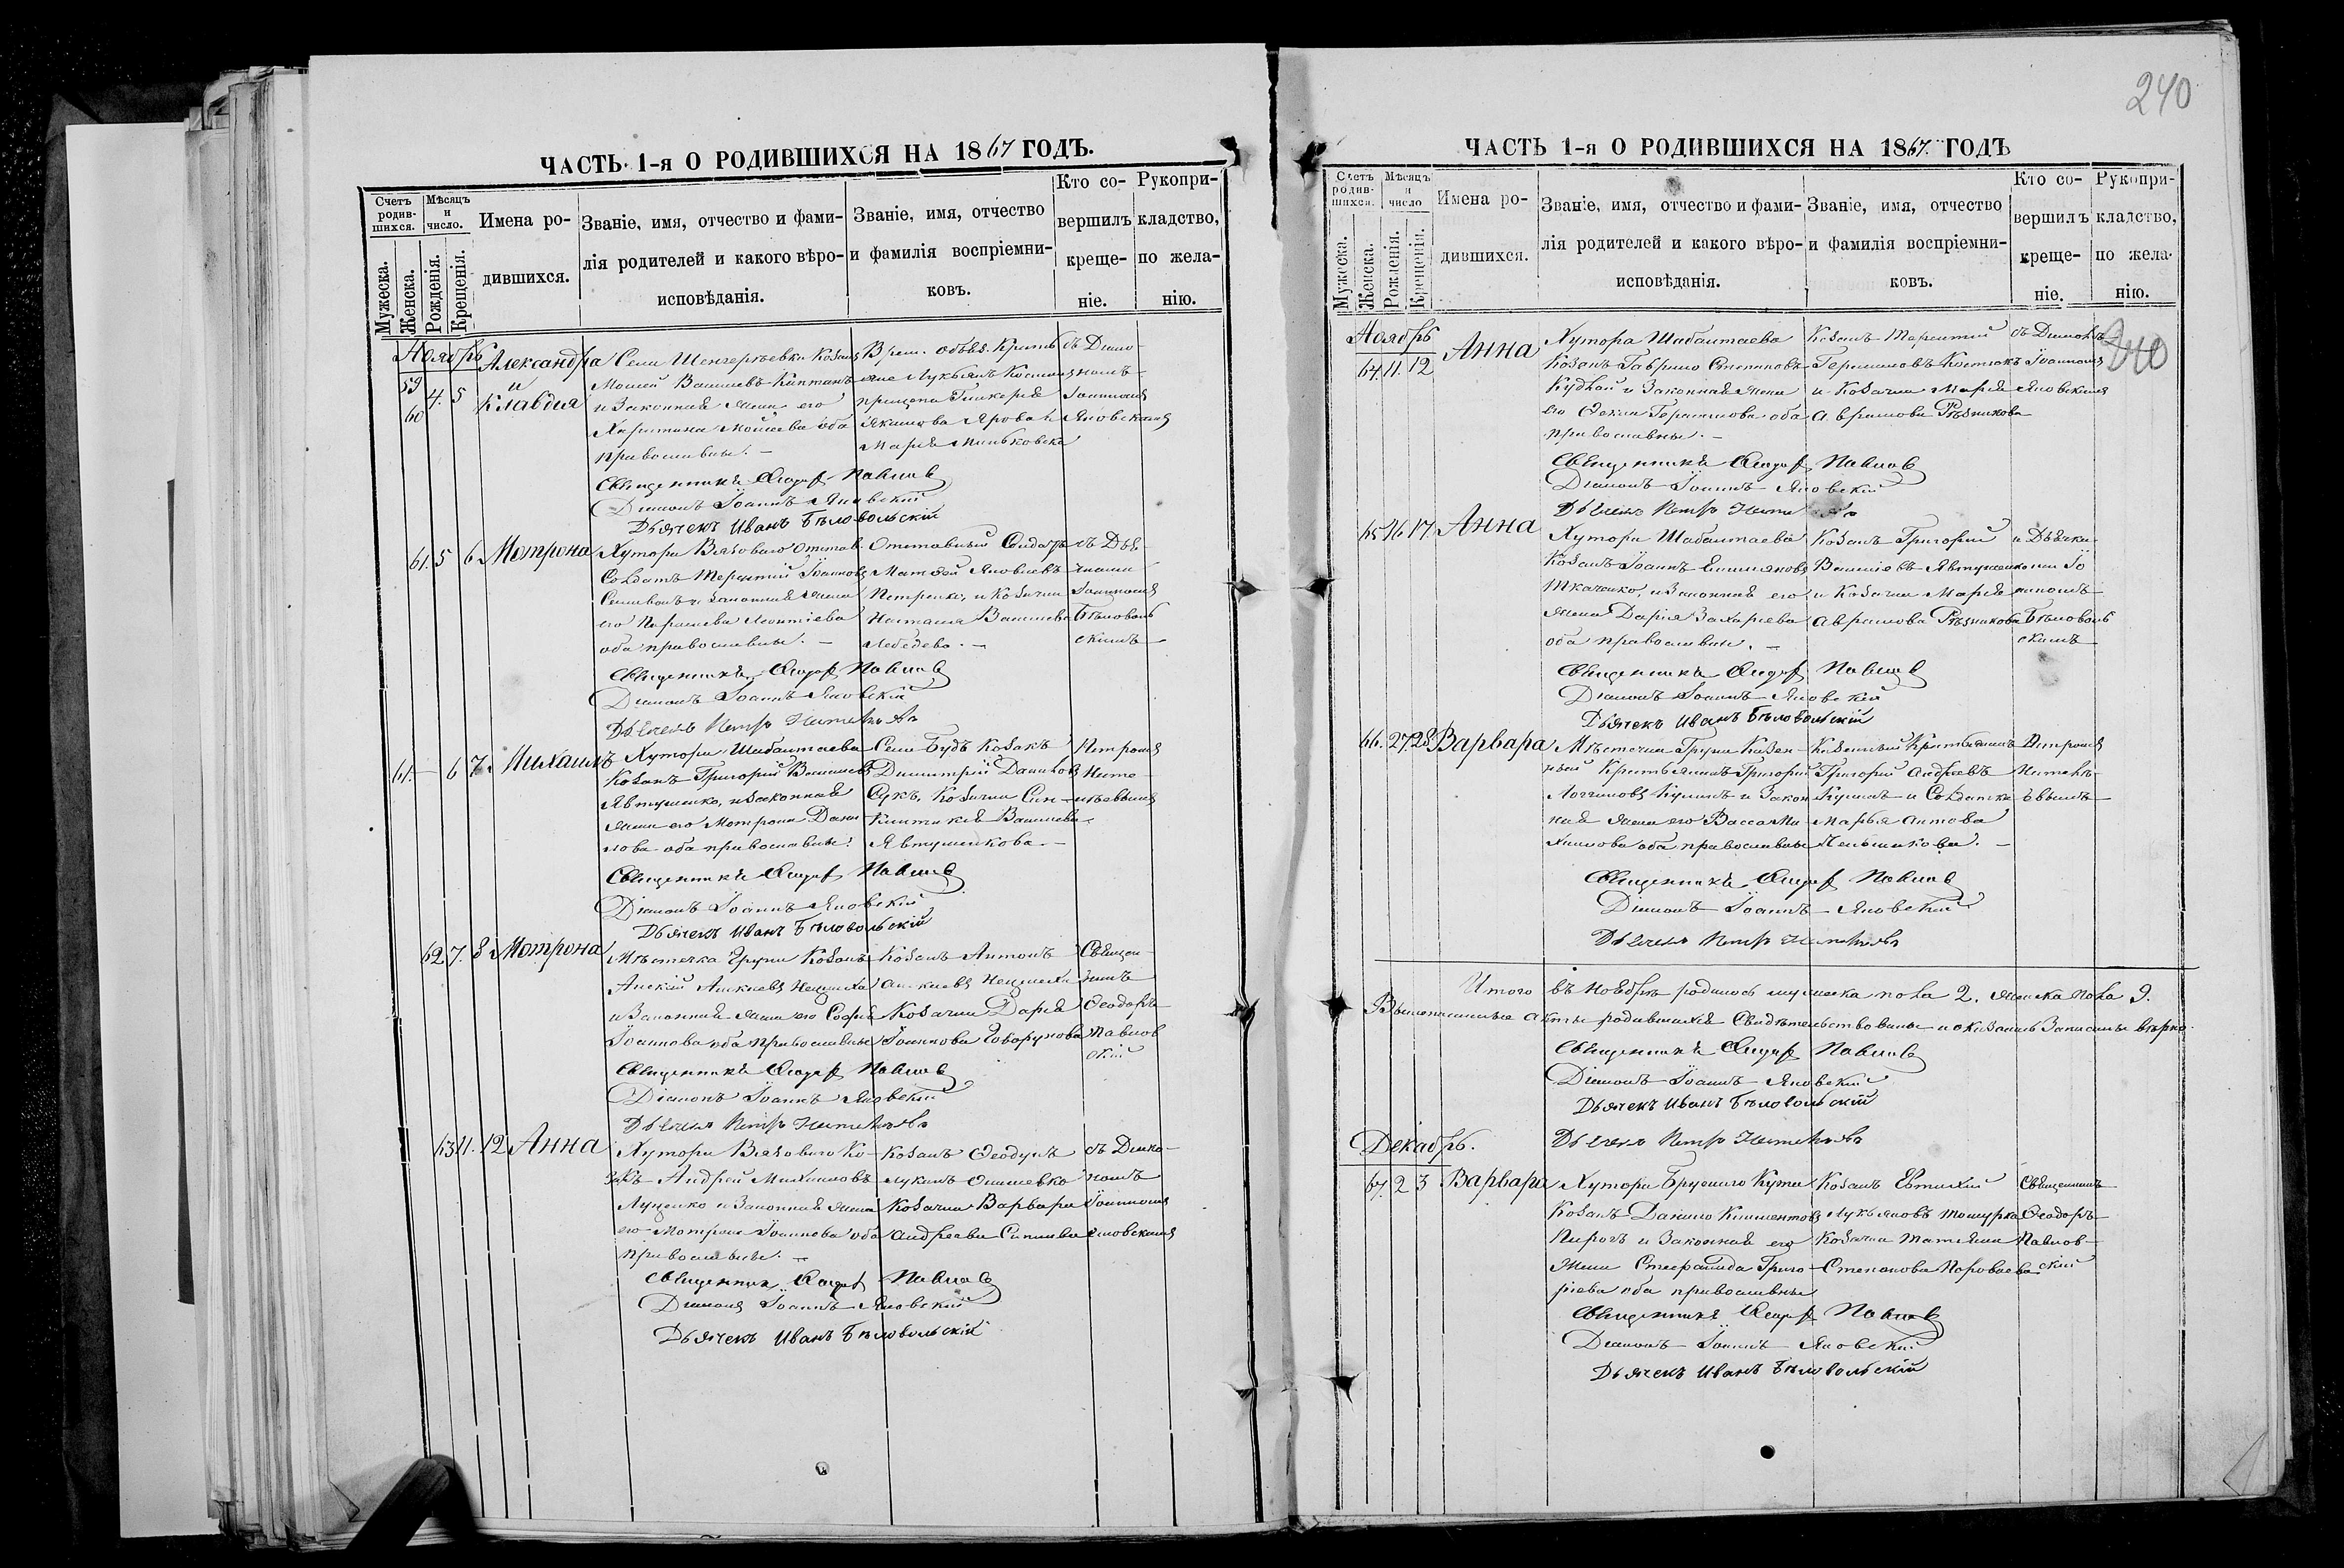 ЧАСТЬ 1-я О РОДИВШИХСЯ НА 1867 ГОДЪ.
Счетъ родив-шихся.
Мѣсяцъ и число.
Имена ро-дившихся.
Званіе, имя, отчество и фами-
лія родителей и какого вѣро-
исповѣданія.
Званіе, имя, отчество
и фамилія воспріемни-
ковъ.
Кто со-
вершилъ
креще-
ніе.
Рукопри-
кладство,
по жела-
нію.
Мужеска.
Женска.
Рожденія.
Крещенія.
Ноябрь
59
60
4. 5
Александра
и
Клавдия
Козакъ
Моисей Васильевъ
и Законная жена его
Харитина Моисеева оба
православны. –
Врем. обяз. Кресть
яне Лукьянъ
Гликерія
Якимова Яровая
Марія Миньковска
съ Диако-
номъ
Іоанномъ
Яновскимъ
Священникъ Ѳеодоръ Павлов
Діаконъ Іоаннъ Яновскій
Дьячекъ Иванъ Бѣловольскій
61. 5 6 Мотрона
Хутора Вязоваго Отстав.
Солдатъ Терентій Іоанновъ
Селивонъ и законная жена
его Параскева Леонтіева
оба православны. –
Отставный Солдатъ
Матѳей Яковлевъ
Петренко, и Козачка
Наталія Васильева
Лебедева. –
съ Дья-
чкомъ
Іоанномъ
Бѣловоль
скимъ
Священникъ Ѳеодоръ Павлов
Діаконъ Іоаннъ Яновскій
Дьячекъ Петръ
61. – 6 7. Михаилъ
Хутора Шабалтаева
Козакъ Григорій Васильевъ
Явтушенко, и законная
жена его Мотрона Дани
лова оба православны.
Села Будъ Козакъ
Димитрій Даниловъ
Сукъ, Козачка Син-
клитикія Васильева
Явтушенкова. –
Петромъ
Священникъ Ѳеодоръ Павлов
Діаконъ Іоаннъ Яновскій
Дьячекъ Иванъ Бѣловольскій
62 7. 8 Мотрона
Мѣстечка Груни Козакъ
и Законная жена его Софія
Іоаннова оба православны
Козакъ Антонъ
Козачка Дарія
Іоаннова Говорунова
Священ-
никъ
Ѳеодоръ
Павлов
скій
Священникъ Ѳеодоръ Павлов
Діаконъ Іоаннъ Яновскій
Дьячекъ Петръ
63 11. 12 Анна
Хутора Вязоваго Ко-
закъ Андрей Михаиловъ
Луценко и Законная жена
его Мотрона Іоаннова оба
православны. –
Козакъ Ѳеодулъ
Козачка Варвара
Андреева
съ Диако-
номъ
Іоанномъ
Яновскимъ
Священникъ Ѳеодоръ Павлов
Діаконъ Іоаннъ Яновскій
Дьячекъ Иванъ Бѣловольскій
240
ЧАСТЬ 1-я О РОДИВШИХСЯ НА 1867. ГОДЪ
Счетъ родив-шихся.
Мѣсяцъ и число
Имена ро-дившихся.
Званіе, имя, отчество и фами-
лія родителей и какого вѣро-
исповѣданія.
Званіе, имя, отчество
и фамилія воспріемни-
ковъ.
Кто со-
вершилъ
креще-
ніе.
Рукопри-
кладство,
по жела-
нію.
Мужеска.
Женска.
Рожденія.
Крещенія.
240
Ноябрь
64. 11. 12
Анна
Хутора Шабалтаева
Козакъ Гаврило Стефановъ
и Законная жена
его Герасимова оба
православны. –
Козакъ Терентій
Герасимовъ Костюкъ
и Козачка Марія
Аврамова Рѣзникова
съ Диакономъ
Іоанномъ
Яновскимъ
Священникъ Ѳеодоръ Павлов
Діаконъ Іоаннъ Яновскій
Дьячекъ Петръ
65 16 17. Анна
Хутора Шабалтаева
Козакъ Іоаннъ
Ткаченко, и Законная его
жена Дарія Захаріева
оба православны. –
Козакъ Григорій
Васильевъ Явтушенко
и Козачка Марія
Аврамова Рѣзникова
и Дьячко-
мъ Іо
анномъ
Бѣловоль
скимъ
Священникъ Ѳеодоръ Павлов
Діаконъ Іоаннъ Яновскій
Дьячекъ Иванъ Бѣловольскій
66. 27 28 Варвара
Мѣстечка Груни Казен-
ный Крестьянинъ Григорій
Логгиновъ Кулишъ и Закон
ная жена его Васса Ми
хаилова оба православны
Казенный Крестьянинъ
Григорій Андреевъ
Кулишъ и Солдатка
Марья Антова
Меньшикова. –
Петромъ
Священникъ Ѳеодоръ Павлов
Діаконъ Іоаннъ Яновскій
Дьячекъ Петръ
Итого въ Ноябрѣ родилось мужеска пола 2. женска пола 9.
Вышеписанные акты родившихся Свидѣтельствованы и оказались Записаны вѣрно.
Священникъ Ѳеодоръ Павлов
Діаконъ Іоаннъ Яновскій
Дьячекъ Иванъ Бѣловольскій
Дьячекъ Петръ
Декабрь.
67. 2 3 Варвара
Хутора Бруснаго Кута
Козакъ Данило Климентовъ
Пирогъ и Законная его
Жена Стефанида Григо-
ріева оба православны
Козакъ Евтихій
Лукьяновъ
Козачка Татьяна
Степанова
Священникъ
Ѳеодоръ
Павлов-
скій
Священникъ Ѳеодоръ Павлов
Діаконъ Іоаннъ Яновскій
Дьячекъ Иванъ Бѣловольскій